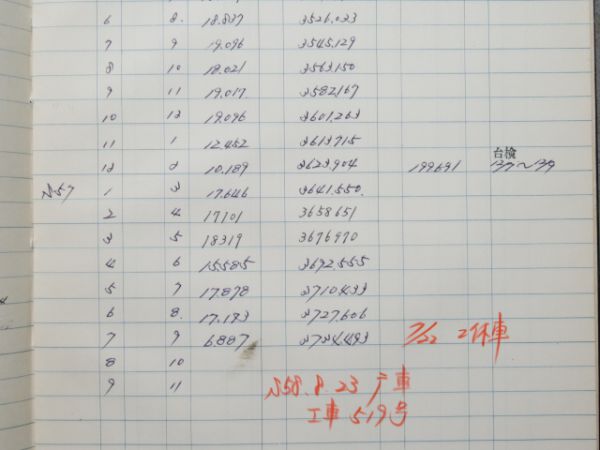 6 8. 18.837 3526.033
7 9 19.096 3545.129
8 10 18.021 3563.150
9 11 19.017 3582167
10 12 19.096 3601.263
11 1 12.452 3613.715
台検
12 2 10.189 3623.904 199691
S57 1 3 17.646 3641.550.
2 4 17101 3658651
3 5 18319 3676970
4 6 15.585 3692.555
5 7 17.878 3710.433
6 8. 17.173 3727.606
7 9 6887 3734.493 7/22 休車
8 10
9 11 S58.8.23 广車
工車 519号